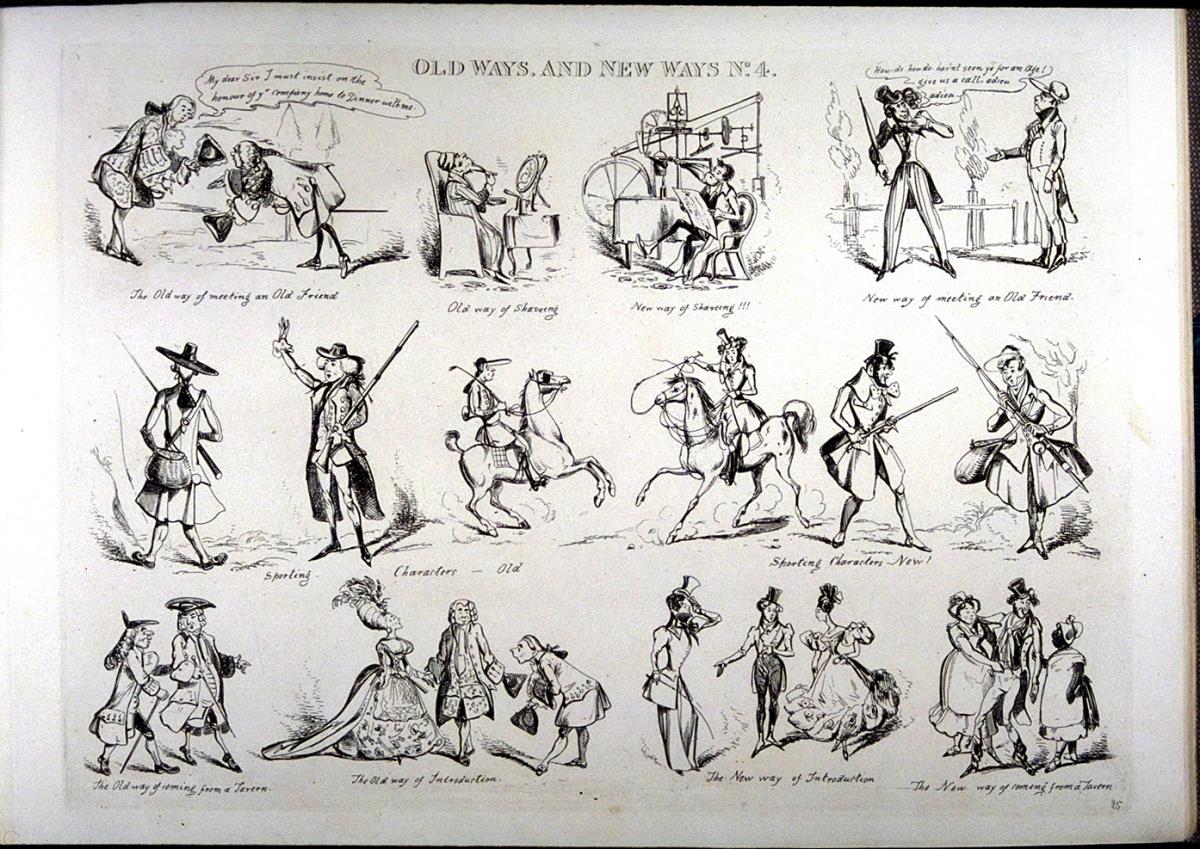 OLD WAYS, AND NEW WAYS No. 4.
My dear Sir I must insist on the
honour of yr company home to Dinner with me
How do how do hav'nt seen ye for an Age!
give us a call, adieu
adieu
The Old way of meeting an Old Friend
Old way of Shaveing
New way of Shaveing!!!
New way of meeting an Old Friend.
Sporting Characters — Old
Sporting Characters - New!
The Old way of coming from a Tavern.
The Old way of Introduction.
The New way of Introduction
The New way of coming from a Tavern
25